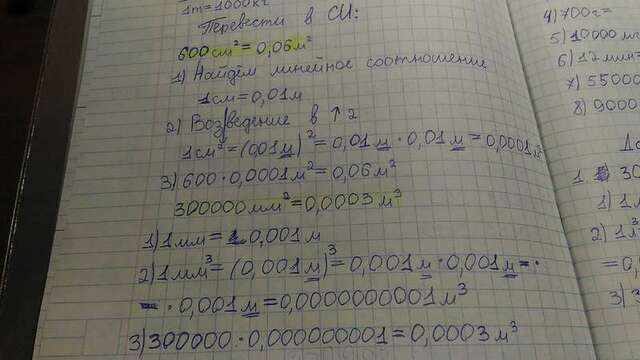 1т=1000кг
Перевести в СИ:
600см²=0,06м²
1) Найдём линейное соотношение
1см=0,01м
2) Возведение в ↑ 2
1см²=(0,01м)²=0,01м·0,01м=0,0001м²
3) 600·0,0001м²=0,06м²
300000мм²=0,0003м³
1) 1мм=0,001м
2) 1мм³=(0,001м)³=0,001м·0,001м=·
=·0,001м=0,0000000001м³
3) 300000·0,000000001=0,0003м³
4) 700г=
5) 10000
6) 12мин=
7) 55000
8) 9000
1 30
1) 1
2) 1
=0,
3) 3